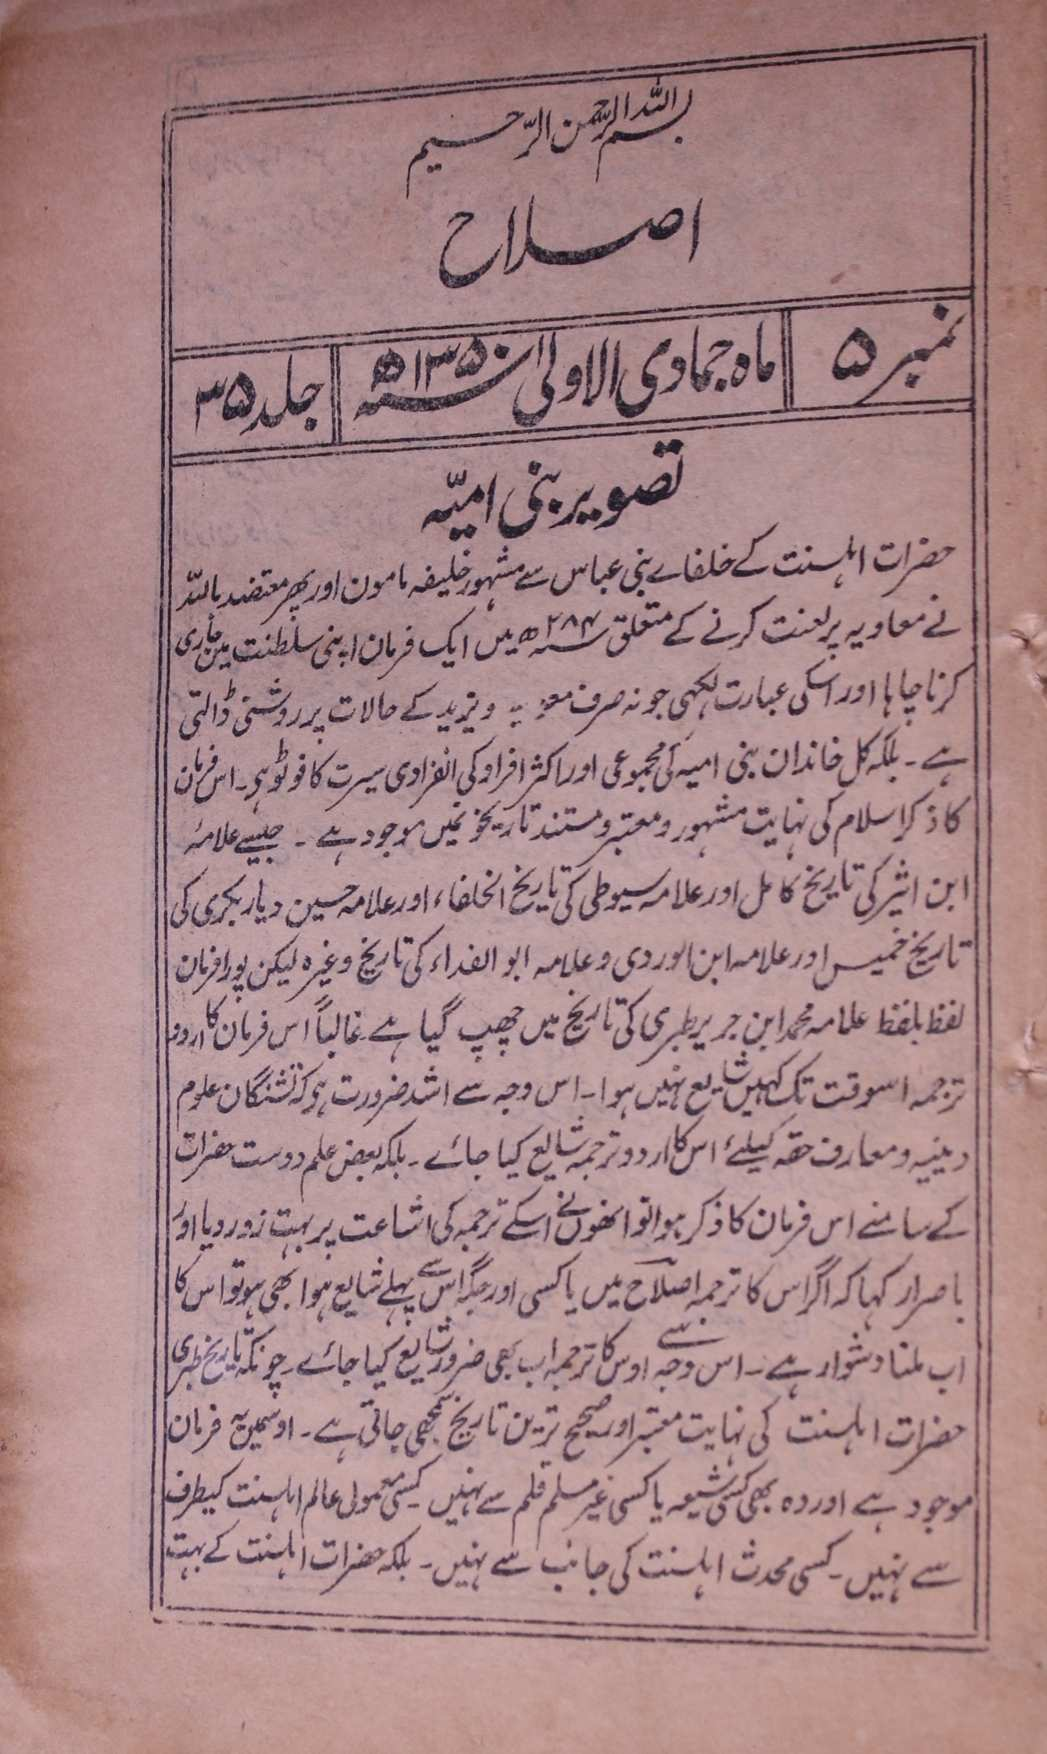 بسم اللہ الرحمن الرحیم
اصلاح
نمبر ۵
ماہ جمادی الاولیٰ سنہ ۱۳۵۰ھ
جلد ۳۵
تصویر بنی امیّہ
حضرات اہلسنت کے خلفاے بنی عباس سے مشہور خلیفہ مامون اور پھر معتضد باللہ
نے معاویہ پر لعنت کرنے کے متعلق سنہ ۲۸۴ھ میں ایک فرمان اپنی سلطنت میں جاری
کرنا چاہا اور اسکی عبارت لکھی جو نہ صرف و یزید کے حالات پر روشنی ڈالتی
ہے ۔ بلکہ کل خاندان بنی امیہ کی مجموعی اور اکثر افراد کی انفرادی سیرت کا فوٹو ہی ۔ اس فرمان
کا ذکر اسلام کی نہایت مشہور و معتبر و مستند تاریخونمیں موجود ہے ۔ جیسے علامۂ
ابن اثیر کی تاریخ کامل اور علامہ سیوطی کی تاریخ الخلفاء اور علامہ حسین دیاربکری کی
تاریخ خمیس اور علامہ ابن الوردی و علامہ ابو الفداء کی تاریخ وغیرہ لیکن پورا فرمان
لفظ بلفظ علامہ محمد ابن جریر طبری کی تاریخ میں چھپ گیا ہے غالباً اس فرمان کا اردو
ترجمہ اسوقت تک کہیں شایع نہیں ہوا ۔ اس وجہ سے اشد ضرورت ہی کہ تشنگان علوم
دینیہ و معارف حقہ کیلئے اس کا اردو ترجمہ شایع کیا جائے ۔ بلکہ بعض علم دوست حضرات
کے سامنے اس فرمان کا ذکر ہوا تو انھوں نے اسکے ترجمہ کی اشاعت پر بہت زور دیا اور
باصرار کہا کہ اگر اس کا ترجمہ اصلاح میں یا کسی اور جگہ اس سے پہلے شایع ہوا بھی ہو تو اس کا
اب ملنا دشوار ہے ۔ اس وجہ سے اوس کا ترجمہ اب بھی ضرور شایع کیا جائے چونکہ تاریخ طبری
حضرات اہلسنت کی نہایت معتبر اور صحیح ترین تاریخ سمجھی جاتی ہے ۔ اوسمیں یہ فرمان
موجود ہے اور وہ بھی کسی شیعہ یا کسی غیر مسلم قلم سے نہیں کسی معمولی عالم اہلسنت کیطرف
سے نہیں ۔ کسی محدث اہلسنت کی جانب سے نہیں ۔ بلکہ حضرات اہلسنت کے بہت